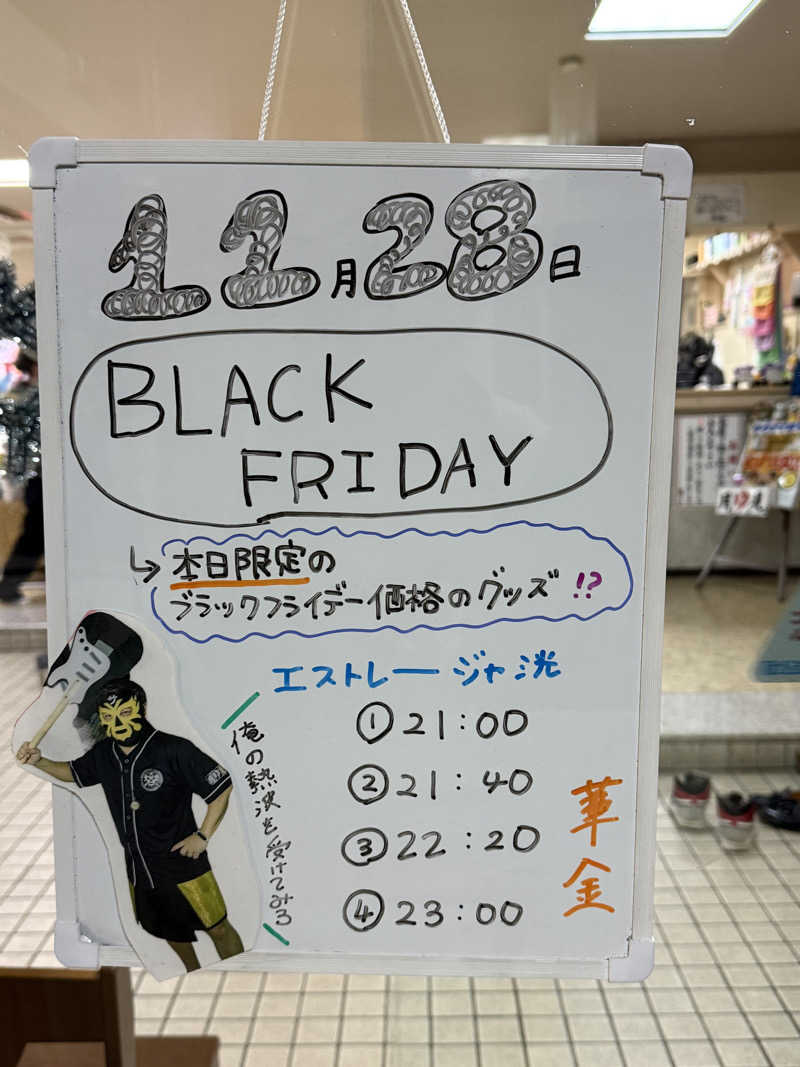 11月28日
BLACK
FRIDAY
↳本日限定の
ブラックフライデー価格のグッズ!?
エストレージャ洸
①21:00
②21:40
③22:20
④23:00
俺の熱波を受けてみろ
華金